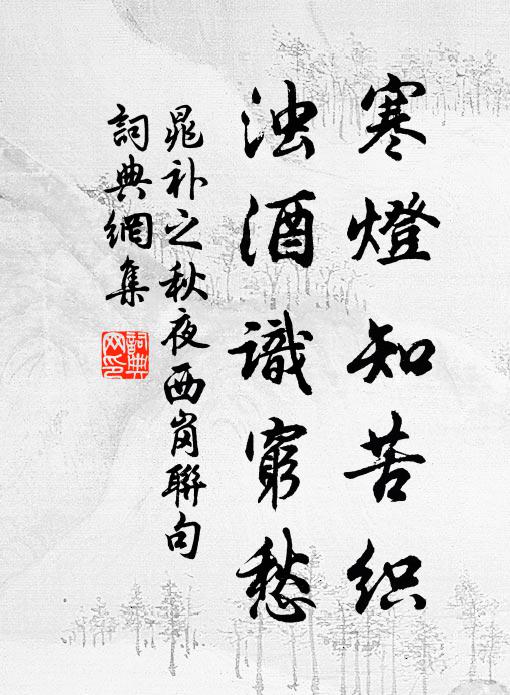 寒燈知苦织
浊酒識窮愁
晁补之秋夜西岗聯句
詞典網集
詞典網印